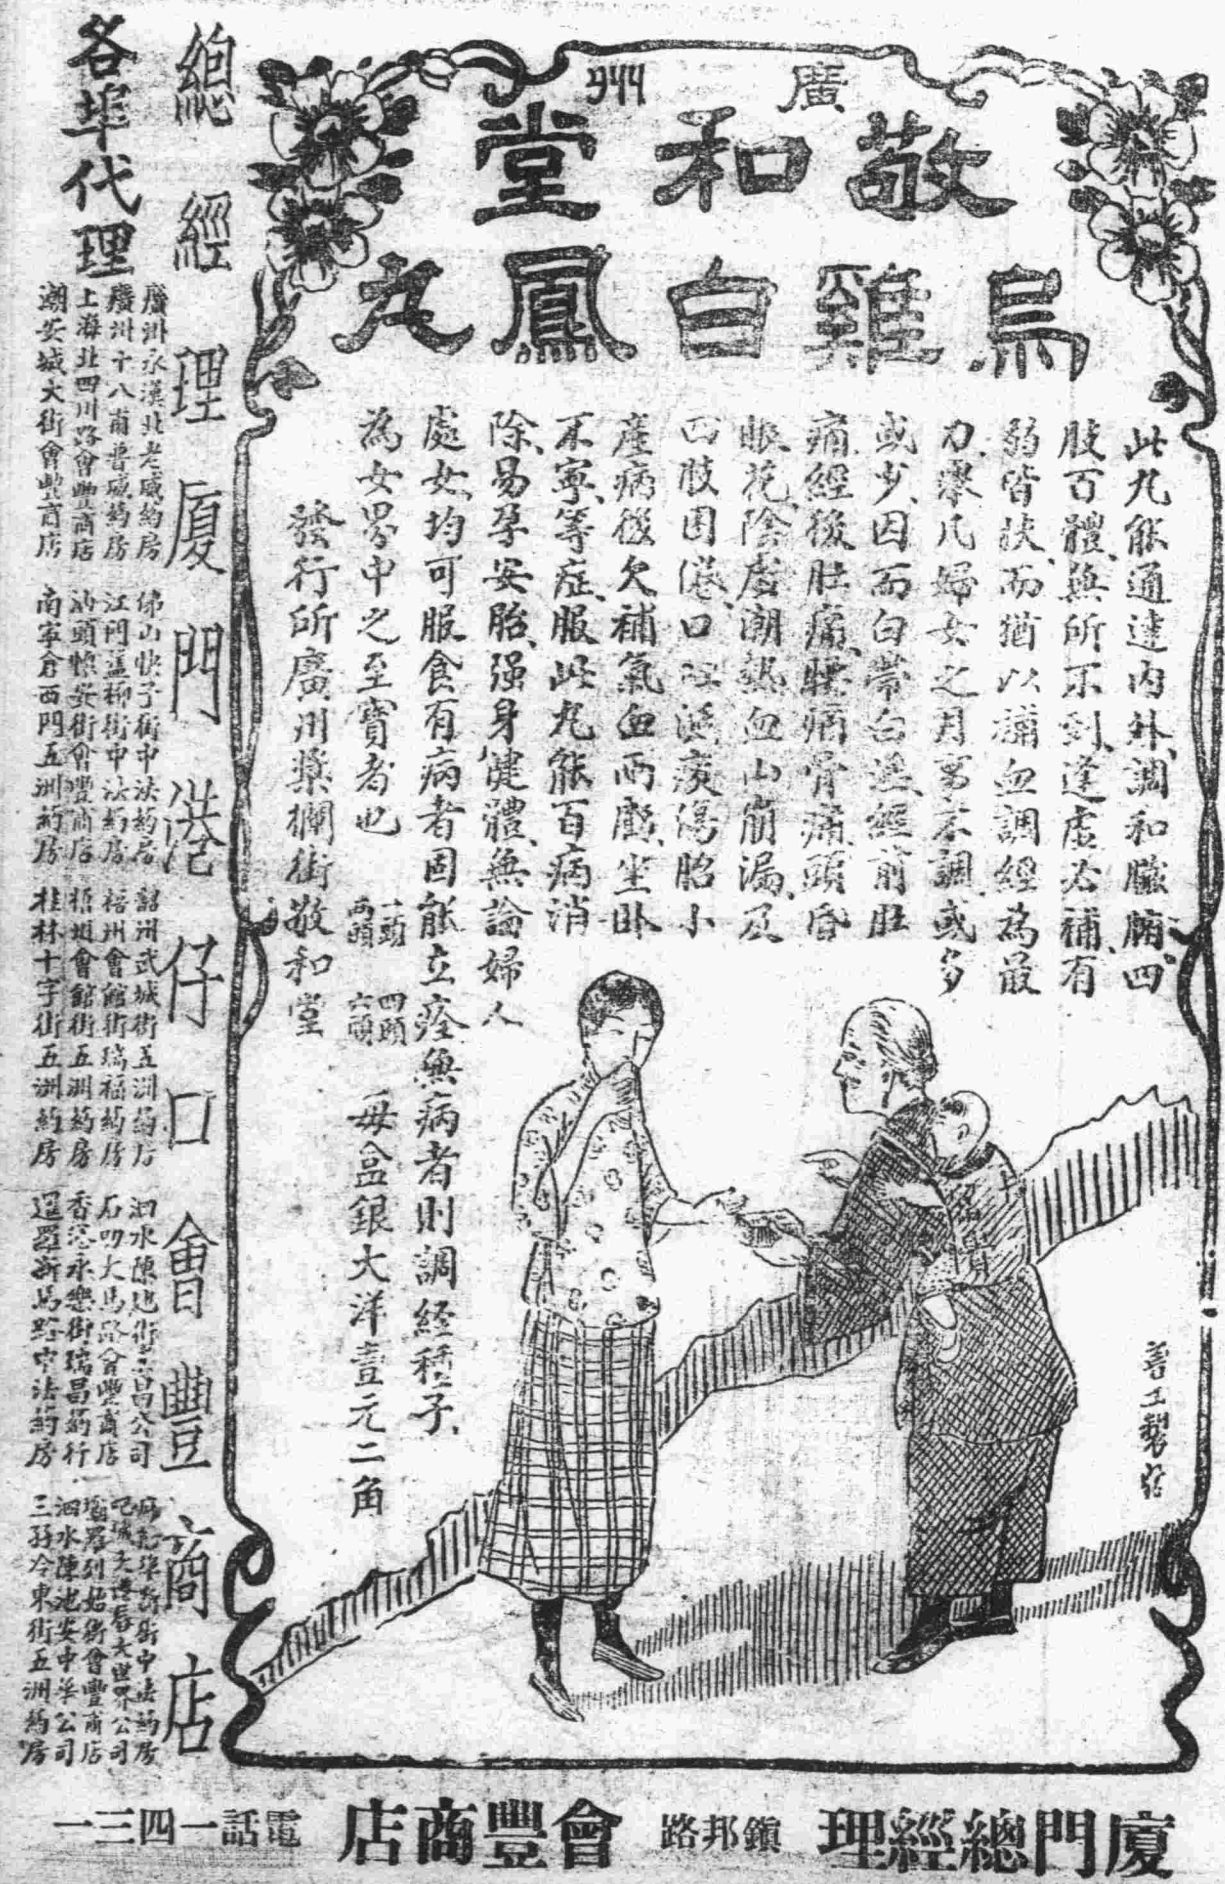 廣州
敬和堂
烏雞白鳳丸
此丸能通達內外、調和臟腑、四
肢百體、無所不到、逢虛必補、有
弱皆扶、而猶以補血調經為最
力、舉凡婦女之月事不調、或多
或少、因而白帶白淫、經前肚
痛、經後肚痛、腰痛骨痛、頭昏
眼花、陰虛潮熱、血山崩漏、及
四肢困倦、口淡痰湧、胎小
產病後欠補、氣血兩虧、坐卧
不寧、等症、服此丸能百病消
除、易孕安胎、强身健體、無論婦人
處女、均可服食、有病者固能立痊、無病者則調經種子、
為女界中之至寶者也
一頭 兩頭 四頭 六頭 每盒銀大洋壹元二角
發行所廣州槳欄街敬和堂
善工製
總經理廈門港仔口會豐商店
各埠代理
廣州永漢北老威約房
廣州十八甫普威約房
上海北四川路會豐商店
潮安城大街會豐商店
佛山快子街中法葯房
江門蓝柳街中法約房
汕頭懷安街會豐商店
南寧倉西門五洲葯房
韶州武城街五洲葯房
梧州會館街瑞福葯房
會館街五洲葯房
桂林十字街五洲葯房
泗水陳池街公司
石叻大馬路會豐商店
香港永樂街瑞昌葯行
暹羅新馬路中法葯房
街中法葯房
大世界公司
街會豐商店
泗水陳池安中華公司
東街五洲葯房
廈門總經理 鎮邦路 會豐商店 電話一四三一